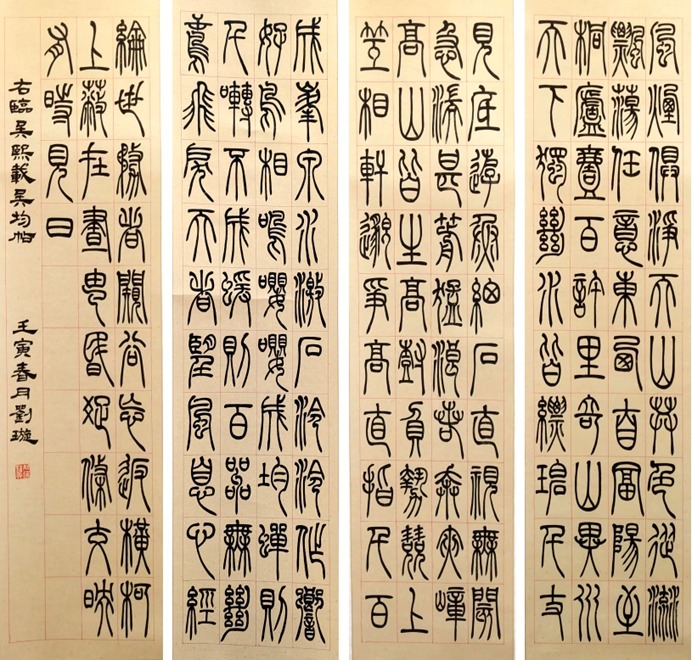 風煙俱淨天山共色從流
飄蕩任意東西自富陽至
桐廬壹百許里奇山異水
天下獨絕水皆縹碧千丈
見底遊魚細石直視無閡
急湍甚箭猛浪若奔夾嶂
高山皆生高樹負勢競上
互相軒邈爭高直指千百
成峯泉水激石泠泠作響
好鳥相鳴嚶嚶成均蟬則
千囀不成蝯則百嘂無絕
鳶飛戾天者望風息心經
綸世務者闚谷忘返橫柯
上蔽在晝猶昏疏條交映
有時見日
右臨吳熙載吳均帖 壬寅春月劉璇